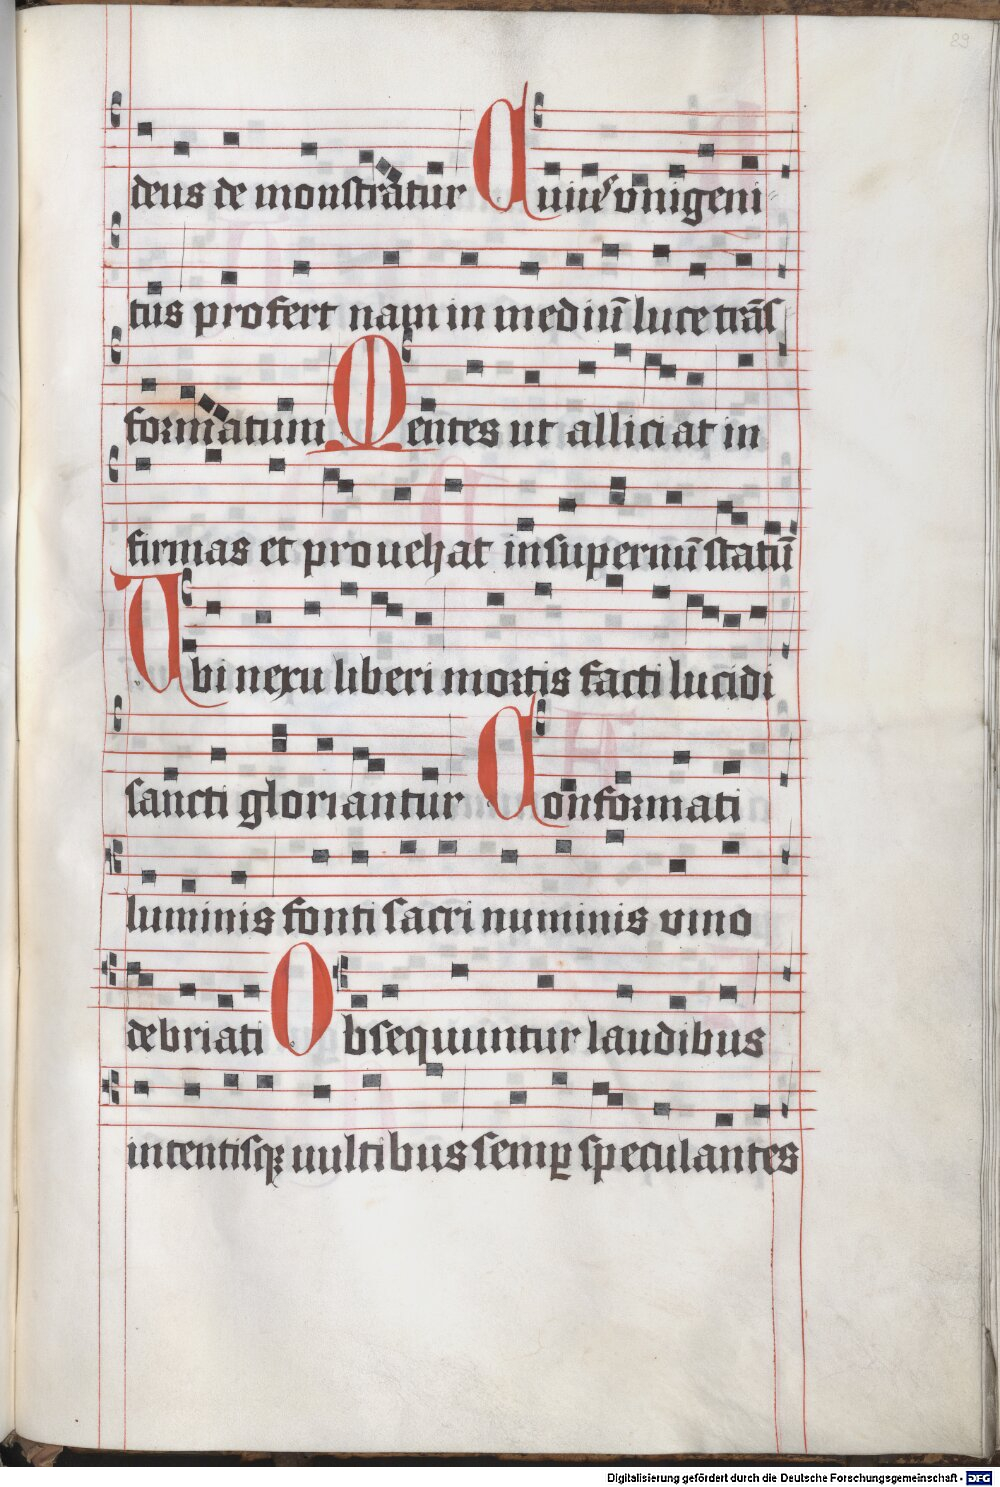 89
deus de monstratur Cuius vnigeni
tus profert nam in mediū luce trās
formatum Mentes ut alliciat in
firmas et prouehat in supernū statū
Ubi nexu liberi mortis facti lucidi
sancti gloriantur Conformati
luminis fonti sacri numinis vino
debriati Obsequuntur laudibus
intentisqꝫ uultibus semꝑ speculantes
Digitalisierung gefördert durch die Deutsche Forschungsgemeinschaft - DFG